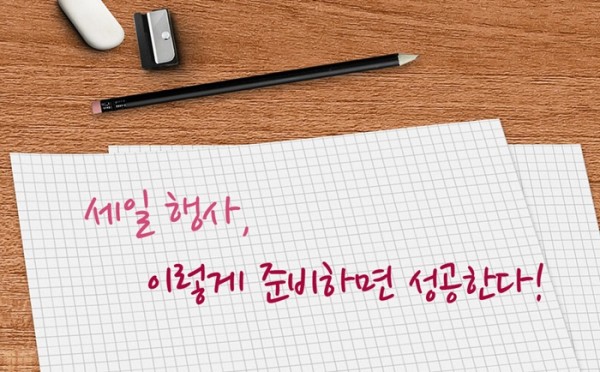 세일 행사,
이렇게 준비하면 성공한다!